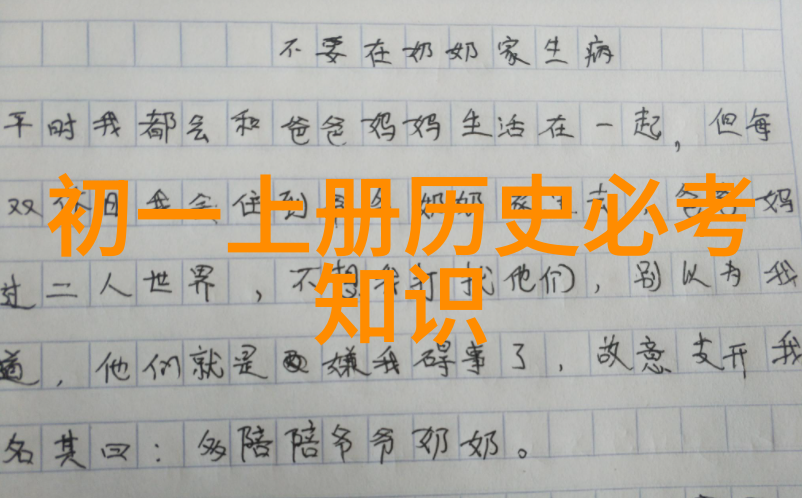 不要在奶奶家生病
平时我都会和爸爸妈妈生活在一起,但每
双休日我会住到爷爷奶奶家里去 爸爸妈
初一上册历史必考
过二人世界,不想我打扰他们,别以为我
知识
道,他们就是嫌我碍事了,故意支开我
名其曰:多陪陪爷爷奶奶。